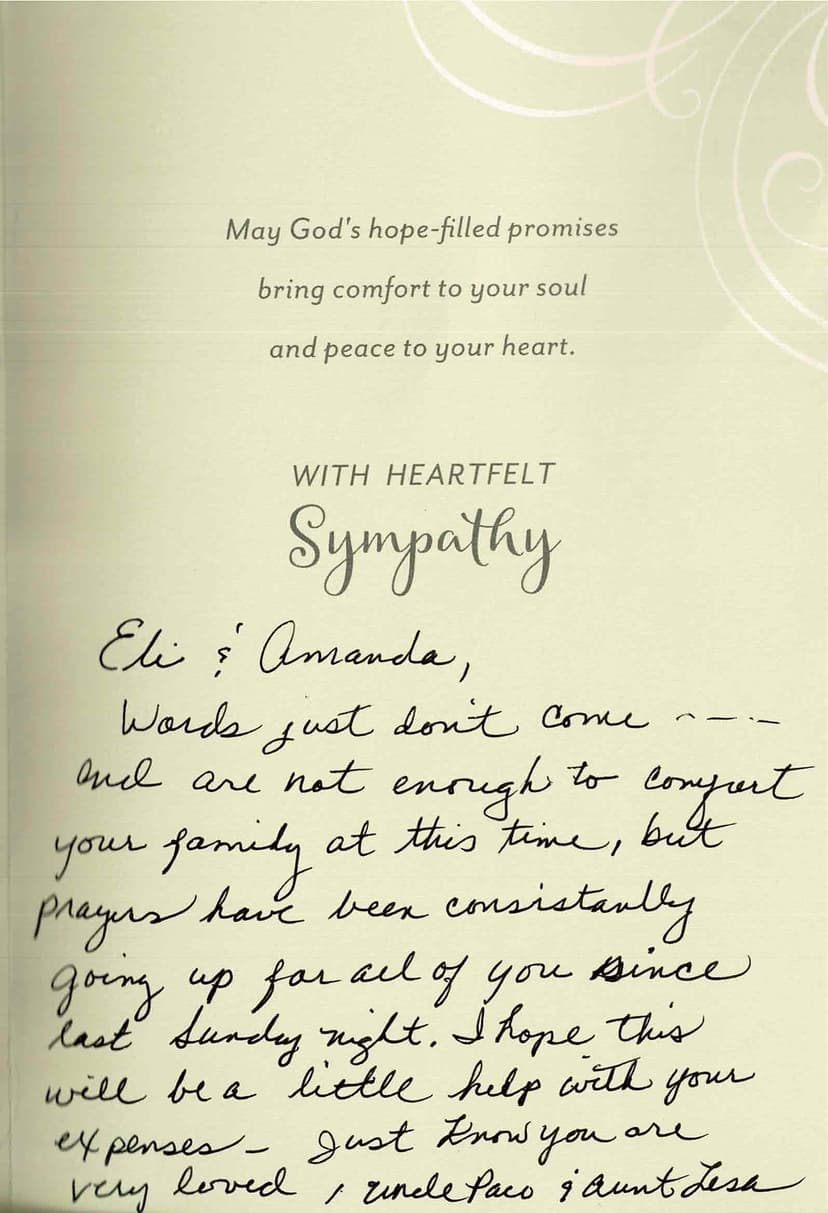 May God's hope-filled promises
bring comfort to your soul
and peace to your heart.
WITH HEARTFELT
Sympathy
Eli & Amanda,
Words just don't come ----
and are not enough to comfort
your family at this time, but
prayers have been consistantly
going up for all of you since
last Sunday night. I hope this
will be a little help with your
expenses - Just know you are
very loved, Uncle Paco & Aunt Lesa